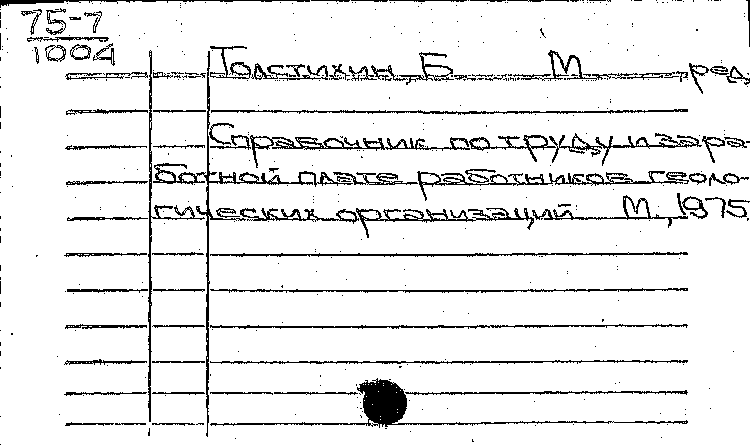 75-7
1004
Толстихин, Б М , ред.
Справочник по труду и зара-
ботной плате работников геоло-
гических организаций М., 1975